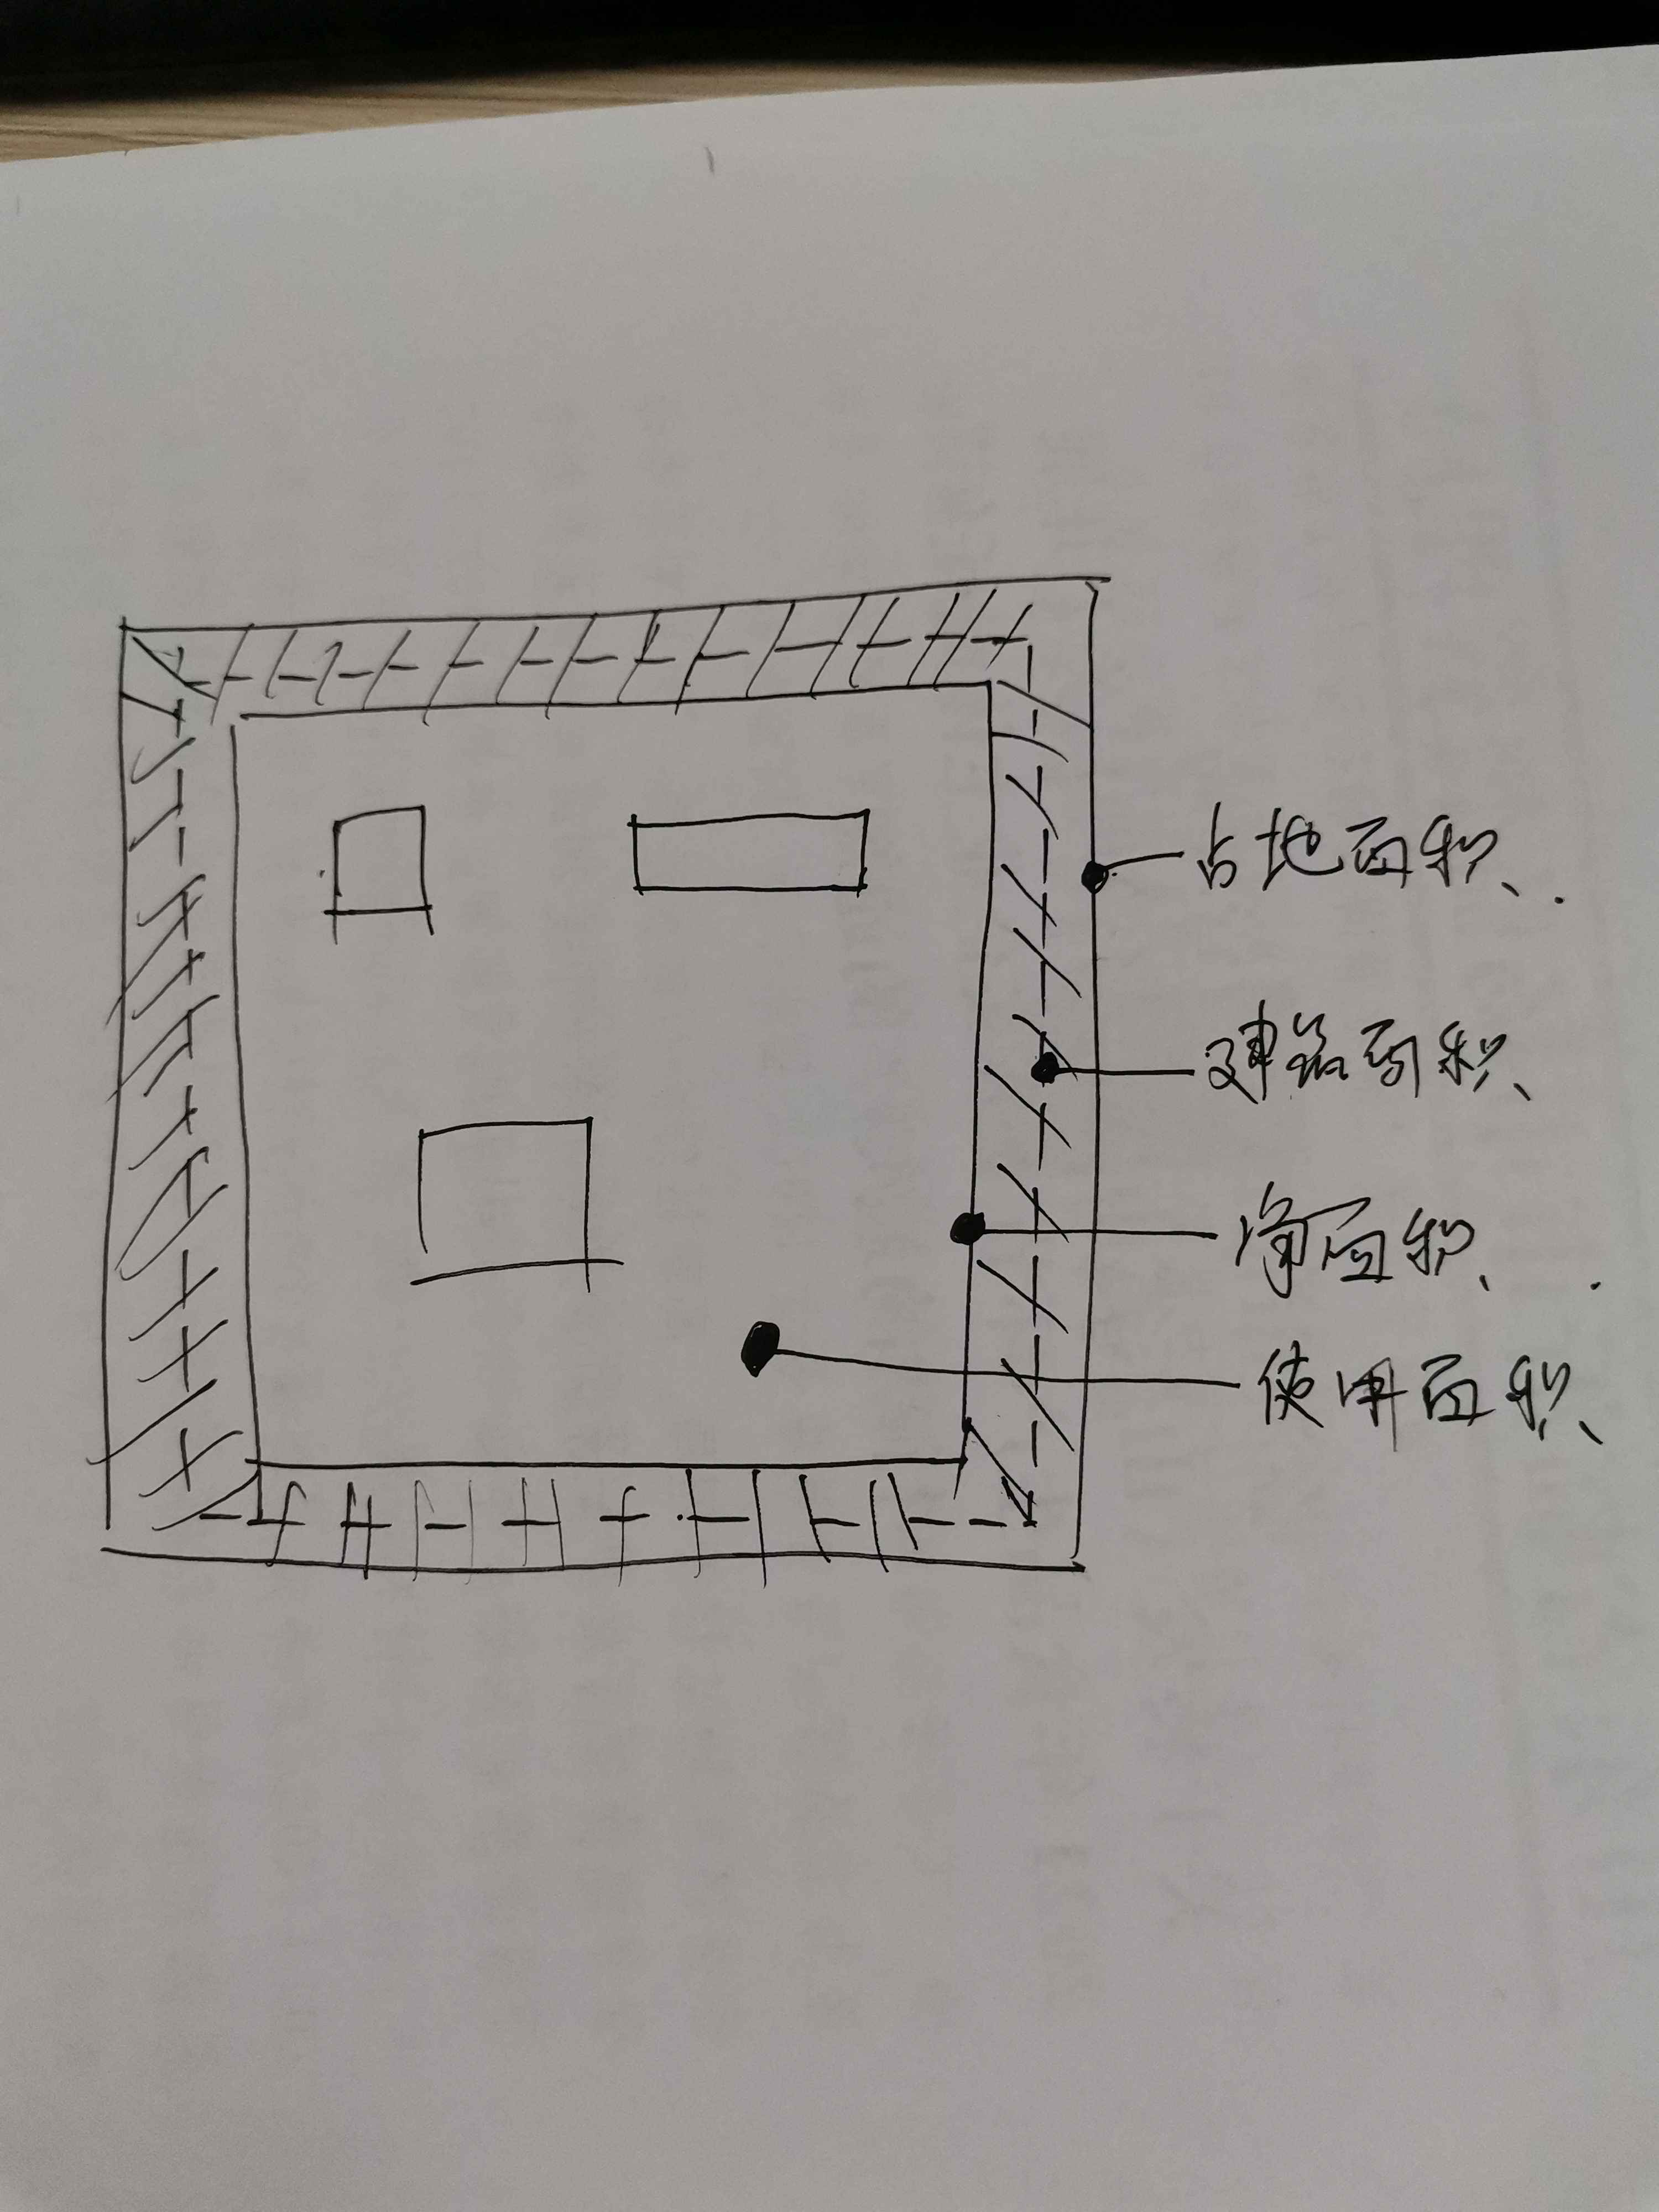 占地面积
建筑面积
净面积
使用面积